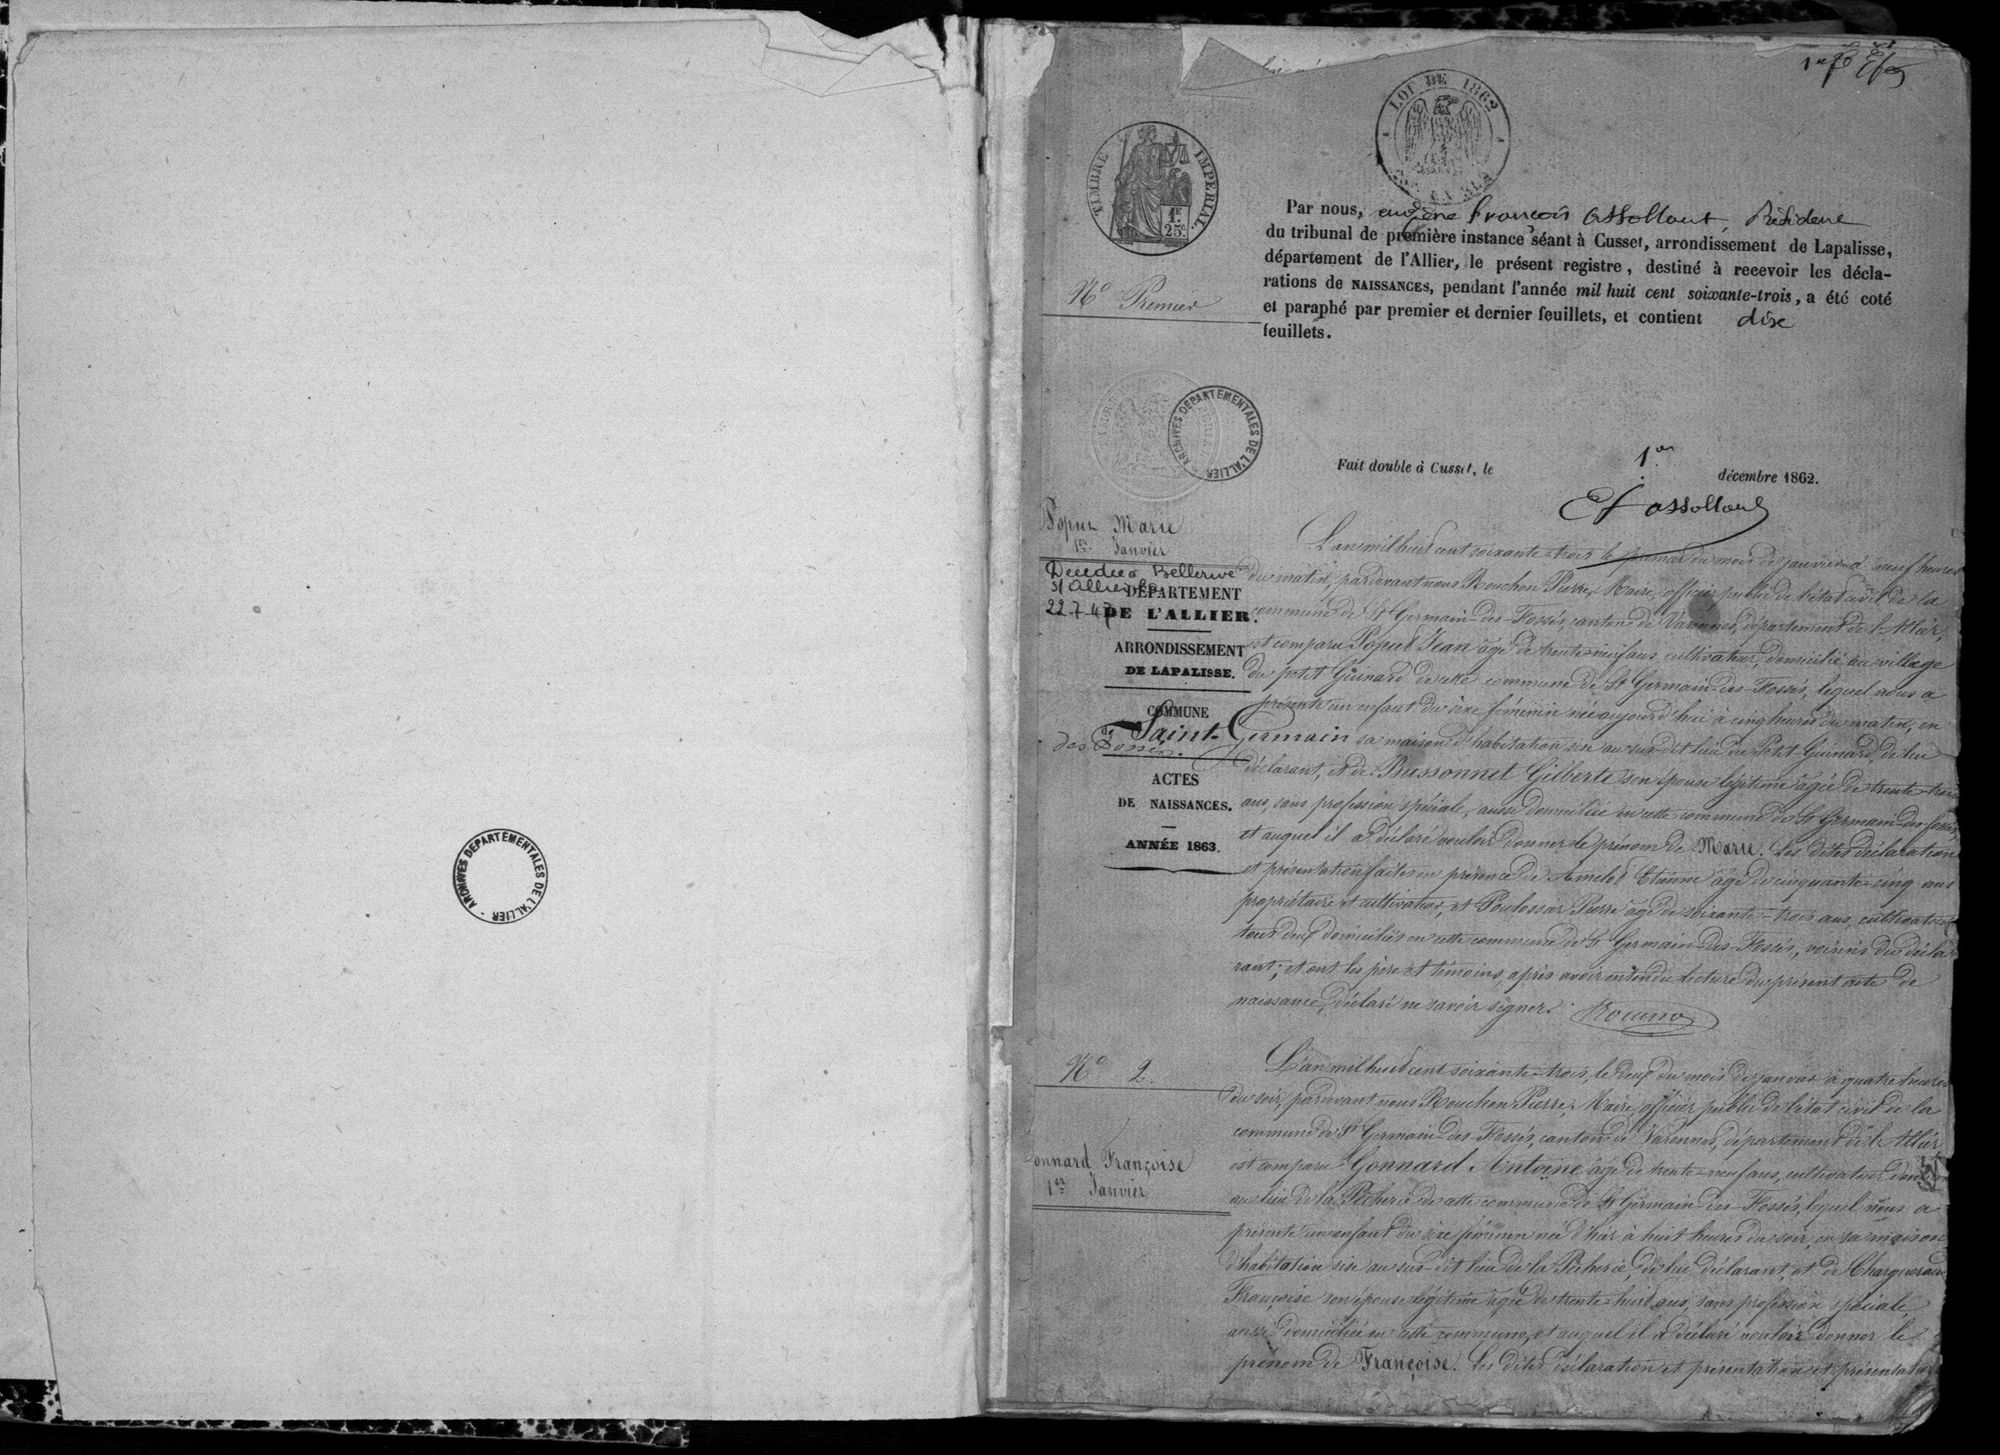 ARCHIVES DEPARTEMENTALES DE L'ALLIER
LOI DE 1862
TIMBRE IMPERIAL
1F. 25c.
Par nous, eugène françois assollant, Président
du tribunal de première instance séant à Cusset, arrondissement de Lapalisse,
département de l'Allier, le présent registre, destiné à recevoir les décla-
rations de NAISSANCES, pendant l'année mil huit cent soixante-trois, a été coté
et paraphé par premier et dernier feuillets, et contient dix
feuillets.
N° Premier
ARCHIVES DEPARTEMENTALES DE L'ALLIER
Fait double à Cusset, le 1er décembre 1862.
Marie
1er Janvier
Décédée à Bellerive
s/ Allier le
22-7-47
DÉPARTEMENT
DE L'ALLIER.
ARRONDISSEMENT
DE LAPALISSE.
COMMUNE
de Saint-Germain
des Fossés.
ACTES
DE NAISSANCES.
ANNÉE 1863.
L'an mil huit cent soixante-trois le premier du mois de janvier à neuf heures
du matin, pardevant nous Rouchon Pierre, Maire, officier public de l'état civil de la
commune de St Germain-des-Fossés, canton de Varennes, département de l'Allier,
est comparu Jean âgé de trente-neuf ans cultivateur, domicilié au village
du petit Guinard de cette commune de St Germain-des-Fossés, lequel nous a
présenté un enfant du sexe féminin née aujourd'hui à cinq heures du matin, en
sa maison d'habitation sise au sus-dit lieu du Petit Guinard, de lui
déclarant, et de Bussonnet Gilberte son épouse légitime âgée de trente-trois
ans, sans profession spéciale, aussi domiciliée en cette commune de St Germain-des-Fossés,
et auquel il a déclaré vouloir donner le prénom de Marie. Les dites déclaration
et présentation faites en présence de Amelot Etienne âgé de cinquante-cinq ans
propriétaire et cultivateur, et Pierre âgé de soixante-trois ans, cultivateur
tous deux domiciliés en cette commune de St Germain-des-Fossés, voisins du décla-
rant; et ont les père et témoins, après avoir entendu lecture du présent acte de
naissance, déclaré ne savoir signer.
N° 2.
onnard Françoise
1er Janvier
L'an mil huit cent soixante-trois, le deux du mois de janvier à quatre heures
du soir, pardevant nous Rouchon Pierre, Maire, officier public de l'état civil de la
commune de St Germain-des-Fossés, canton de Varennes, département de l'Allier
est comparu Gonnard Antoine âgé de trente-neuf ans, cultivateur
au lieu de la Pêcherie de cette commune de St Germain-des-Fossés, lequel nous a
présenté un enfant du sexe féminin née d'hier à huit heures du soir, en sa maison
d'habitation sise au sus-dit lieu de la Pêcherie, de lui déclarant, et de
Françoise son épouse légitime âgée de trente-huit ans, sans profession spéciale,
aussi domiciliée en cette commune, et auquel il a déclaré vouloir donner le
prénom de Françoise. Les dites déclaration et présentation et